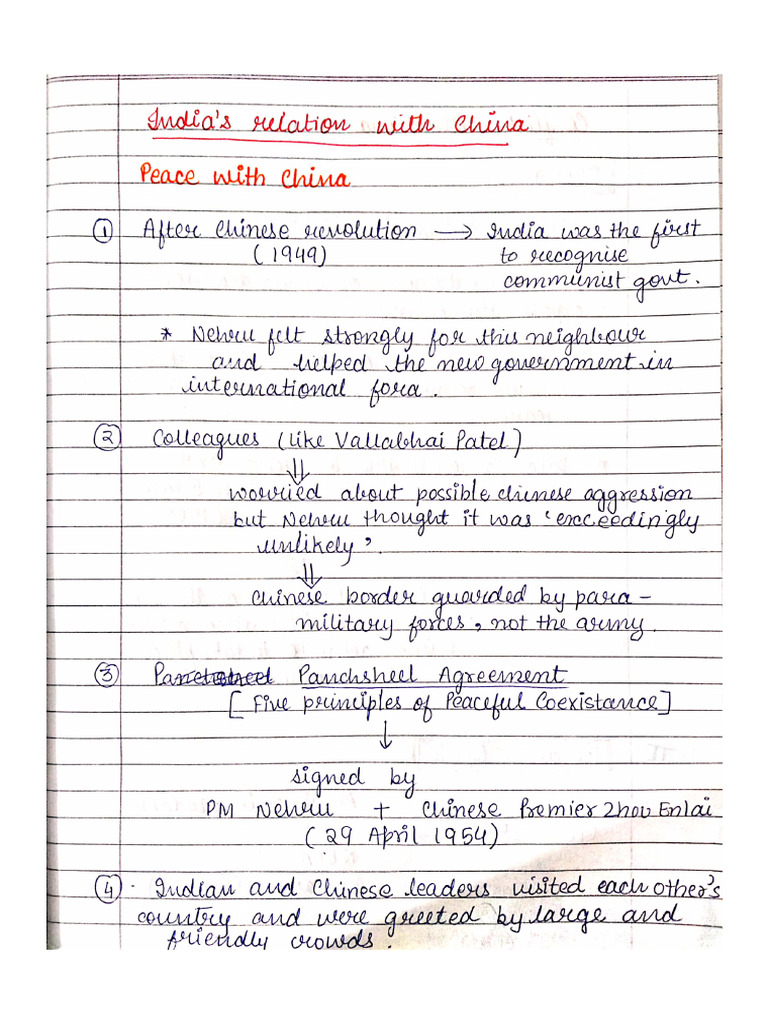 India's relation with China
Peace with China
① After Chinese revolution → India was the first
(1949) to recognise
communist govt.
* Nehru felt strongly for this neighbour
and helped the new government in
international fora.
② Colleagues (like Vallabhai Patel)
⇓
worried about possible chinese aggression
but Nehru thought it was 'exceedingly
unlikely'.
⇓
Chinese border guarded by para-
military forces, not the army.
③ Panchsheel Agreement
[Five principles of Peaceful Coexistance]
↓
signed by
PM Nehru + Chinese Premier Zhou Enlai
(29 April 1954)
④ · Indian and Chinese leaders visited each other's
country and were greeted by large and
friendly crowds.